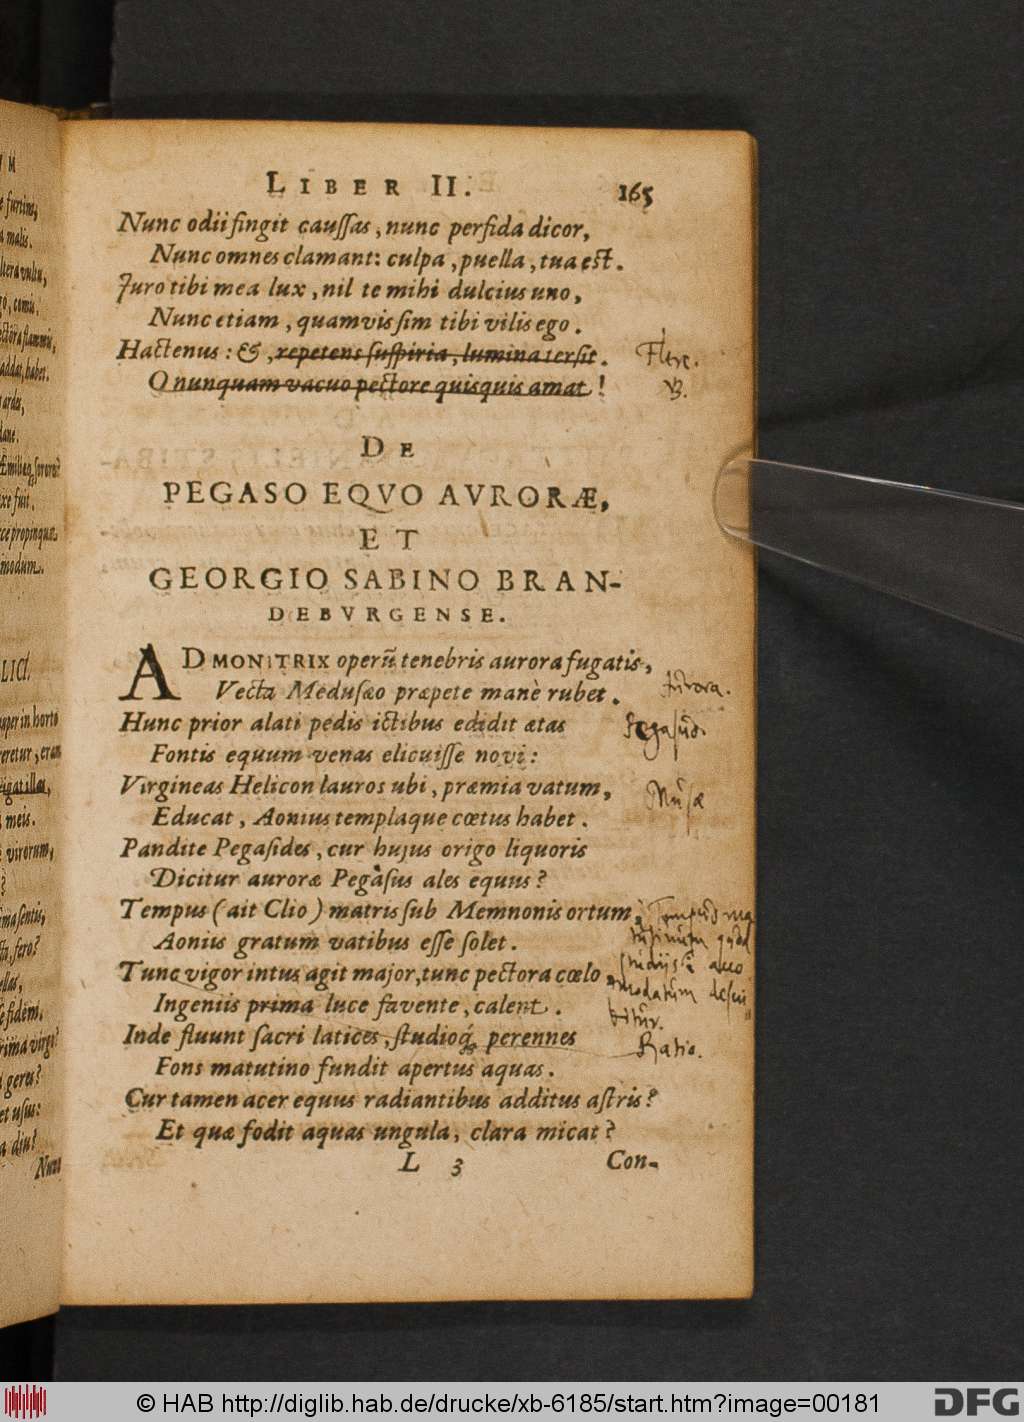 LIBER II. 165
Nunc odii fingit caussas, nunc perfida dicor,
Nunc omnes clamant: culpa, puella, tua est.
Juro tibi mea lux, nil te mihi dulcius uno,
Nunc etiam, quamvis sim tibi vilis ego.
Hactenus: &, repetens suspiria, lumina tersit. Flere.
O nunquam vacuo pectore quisquis amat!
DE
PEGASO EQVO AVRORÆ,
ET
GEORGIO SABINO BRAN-
DEBVRGENSE.
ADMONITRIX operũ tenebris aurora fugatis,
Vecta Medusæo præpete manè rubet. Aurora.
Hunc prior alati pedis ictibus edidit ætas Pegasus.
Fontis equum venas elicuisse novi:
Virgineas Helicon lauros ubi, præmia vatum, Musæ
Educat, Aonius templaque cœtus habet.
Pandite Pegasides, cur hujus origo liquoris
Dicitur auroræ Pegasus ales equus?
Tempus (ait Clio) matris sub Memnonis ortum, Tempus ma
Aonius gratum vatibus esse solet. tutinum quod
Tunc vigor intus agit major, tunc pectora cœlo studiis acco
Ingeniis prima luce favente, calent. modatum descri
bitur.
Inde fluunt sacri latices, studioq́; perennes Ratio.
Fons matutino fundit apertus aquas.
Cur tamen acer equus radiantibus additus astris?
Et quæ fodit aquas ungula, clara micat?
L 3 Con-
LICI.
meis.
virorum,
Nunc
© HAB http://diglib.hab.de/drucke/xb-6185/start.htm?image=00181
DFG